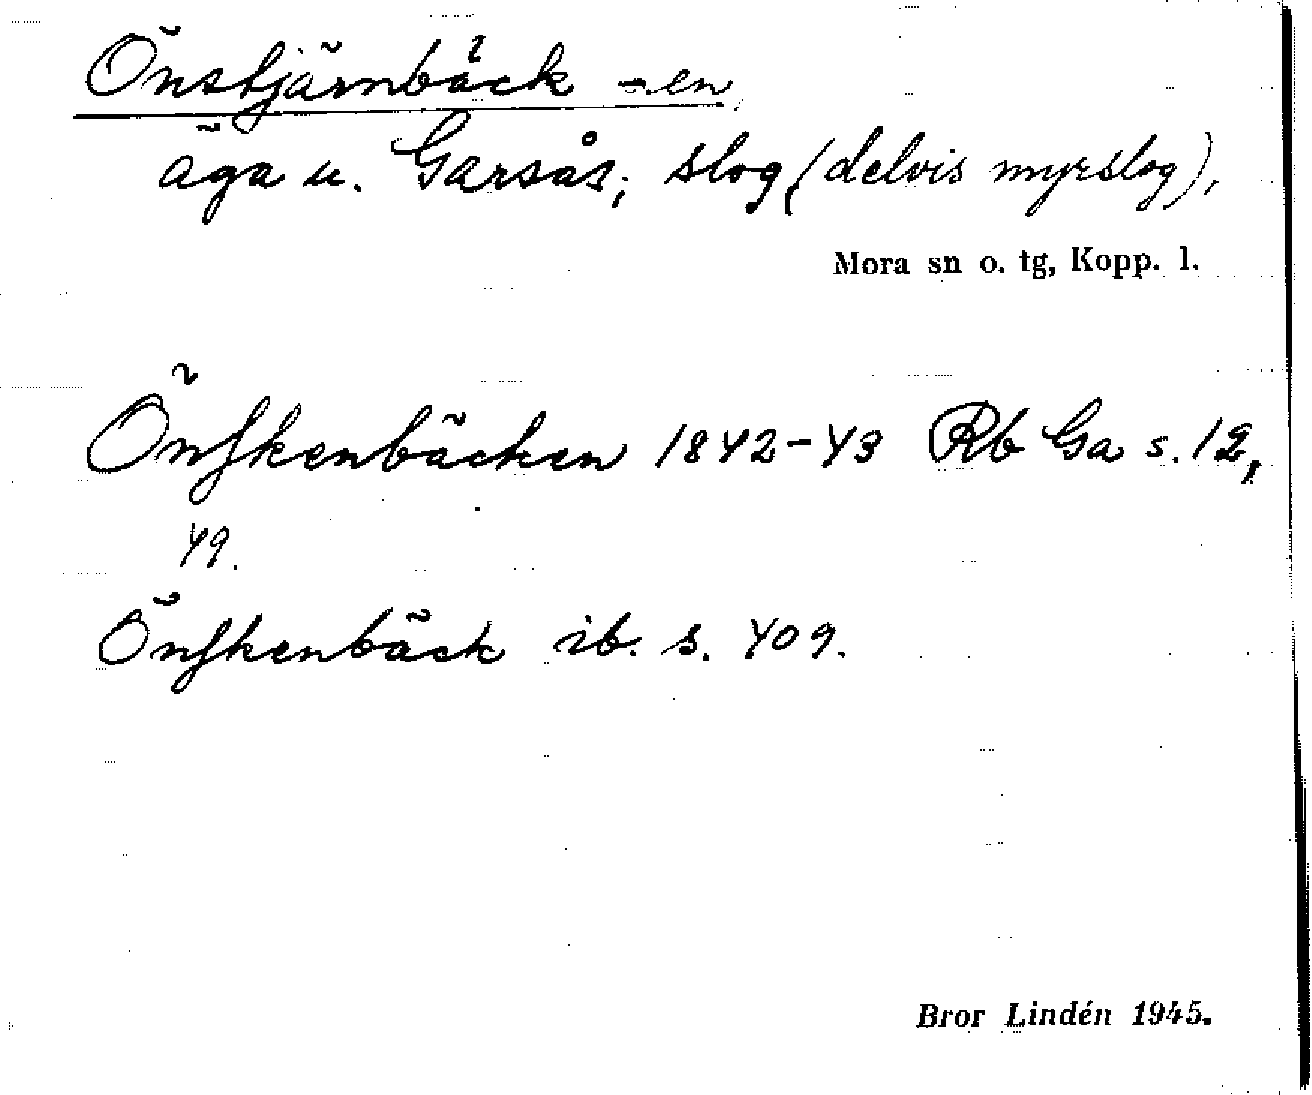 Önstjärnbäck -en,
äga u. Garsås; slog (delvis myrslog),
Mora sn o. tg, Kopp. l.
Önſkenbäcken 1842-43 Rb Ga s. 12,
49.
Önſkenbäck ib. s. 409.
Bror Lindén 1945.